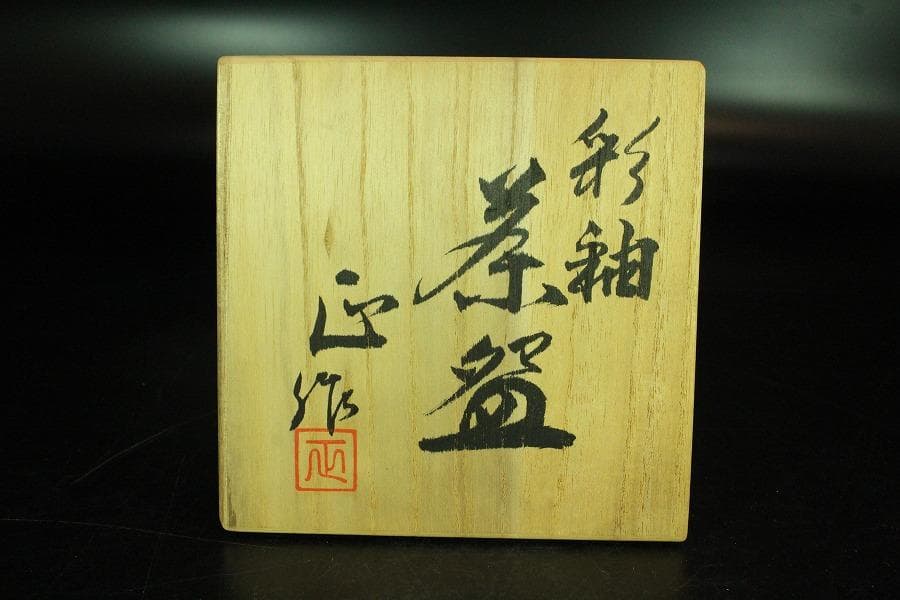 彩釉
茶盌
正作
正